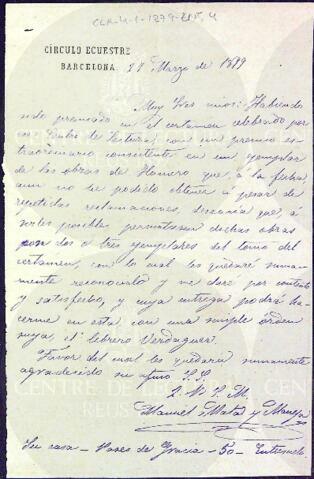 CLR-4-1-1879-206,4
CÍRCULO ECUESTRE
BARCELONA.
27 Marzo de 1879
Muy Sres mios: Habiendo
sido premiado en el certamen celebrado por
ese Centro de Lectura, con un premio es-
traordinario consistente en un ejemplar
de las obras de Homero que, á la fecha,
aun no he podido obtener á pesar de
repetidas reclamaciones, desearia que, á
serles posible, permutasen dichas obras
por dos ó tres ejemplares del tomo del
certamen, con lo cual les quedaré suma-
mente reconocido y me daré por contento
y satisfecho, y cuya entrega podrá ha-
cerme en esta con una simple órden
suya, el librero Verdaguer.
Favor del cual les quedará sumamente
agradecido su afmo S.S.
Q.B.S.M.
Manuel Mata y Maneja
Su casa - Paseo de Gracia - 50 - Entresuelo
CENTRE DE LECTURA
REUS